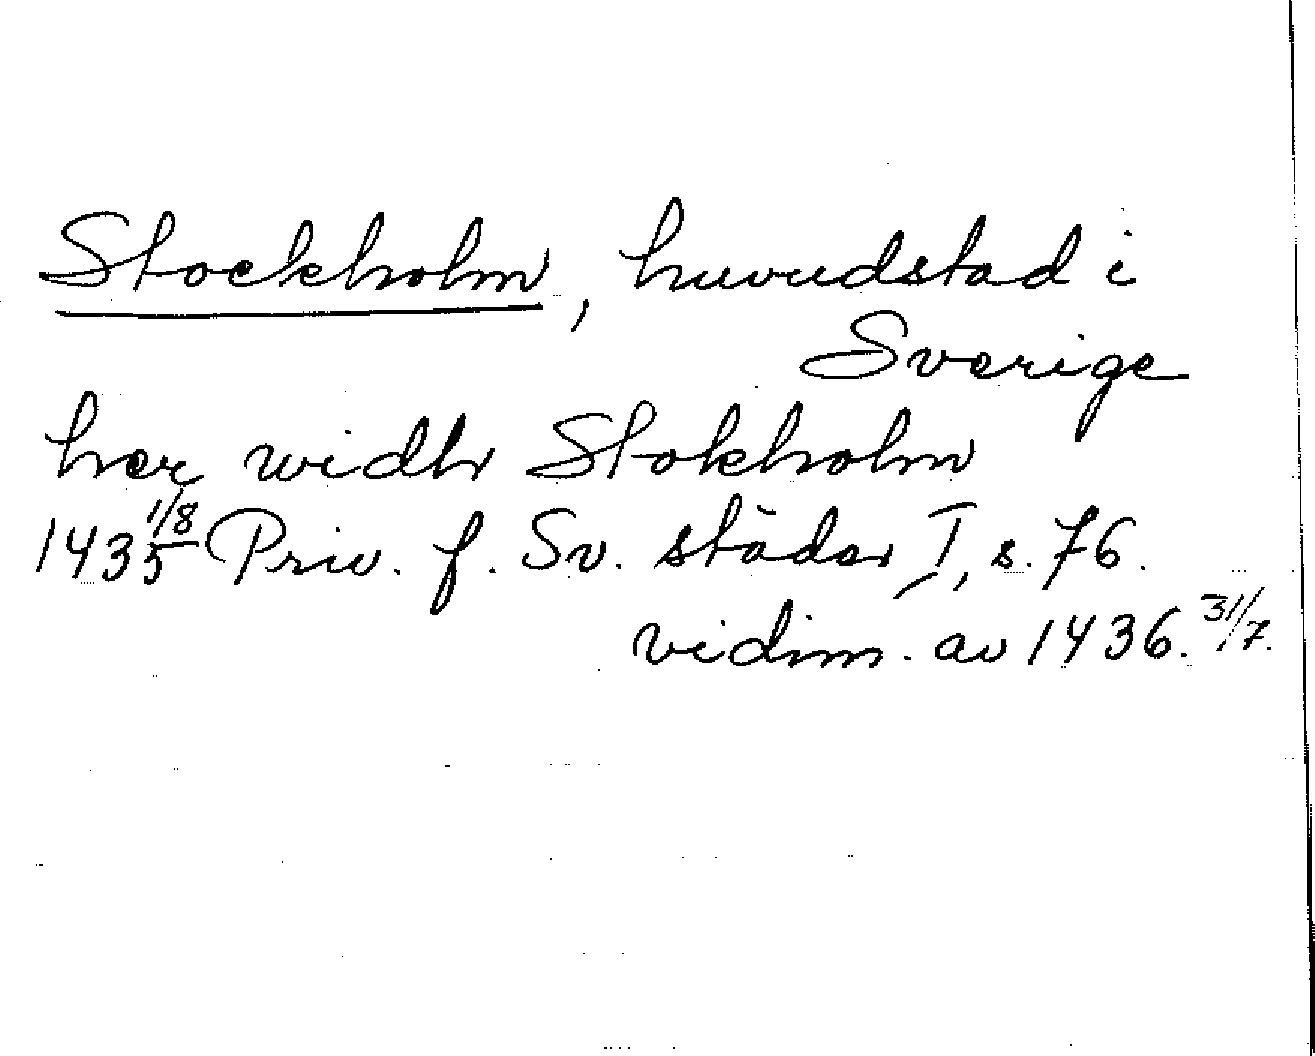 Stockholm, huvudstad i
Sverige
hær widh Stokholm
1435 1/8 Priv. f. Sv. städer I, s. 76.
vidim. av 1436. 31/7.